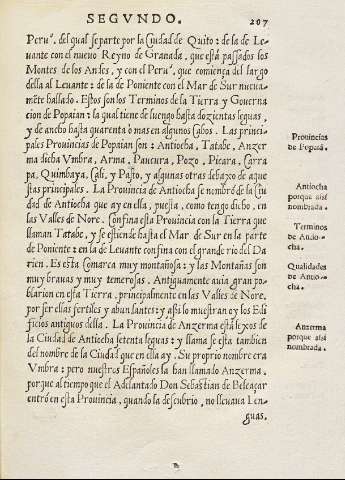 SEGVNDO. 207
Peru', del qual se parte por la Ciudad de Quito: de la de Le-
uante con el nueuo Reyno de Granada, que està passados los
Montes de los Andes, y con el Peru', que comiença del largo
della al Leuante: de la de Poniente con el Mar de Sur nueua-
mẽte hallado. Estos son los Terminos de la Tierra y Gouerna
cion de Popaian: la qual tiene de luengo hasta dozientas leguas,
y de ancho hasta quarenta o mas en algunos Cabos. Las princi-
pales Prouincias de Popaian son: Antiocha, Tatabe, Anzer
ma dicha Vmbra, Arma, Paucura, Pozo, Picara, Carra
pa, Quimbaya, Cali, y Pasto, y algunas otras debaxo de aque
stas principales. La Prouincia de Antiocha se nombró de la Ciu
dad de Antiocha que ay en ella, puesta, como tengo dicho, en
las Valles de Nore. Confina esta Prouincia con la Tierra que
llaman Tatabe, y se estiende hasta el Mar de Sur en la parte
de Poniente: en la de Leuante confina con el grande rio del Da
rien. Es esta Comarca muy montañosa: y las Montañas son
muy brauas y muy temerosas. Antiguamente auia gran po-
blarion en esta Tierra, principalmente en las Valles de Nore,
por ser ellas fertiles y abundantes: y assi lo muestran oy los Edi
ficios antiguos della. La Prouincia de Anzerma està lexos de
la Ciudad de Antiocha setenta leguas: y llama se esta tambien
del nombre de la Ciudad que en ella ay. Su proprio nombre era
Vmbra: pero nuestros Españoles la han llamado Anzerma,
porque al tiempo que el Adelantado Don Sebastian de Belcaçar
entrò en esta Prouincia, quando la descubrio, no lleuaua Len-
guas.
Prouincias
de Popaiã.
Antiocha
porque assi
nombrada.
Terminos
de Antio-
cha.
Qualidades
de Antio-
cha.
Anzerma
porque assi
nombrada.